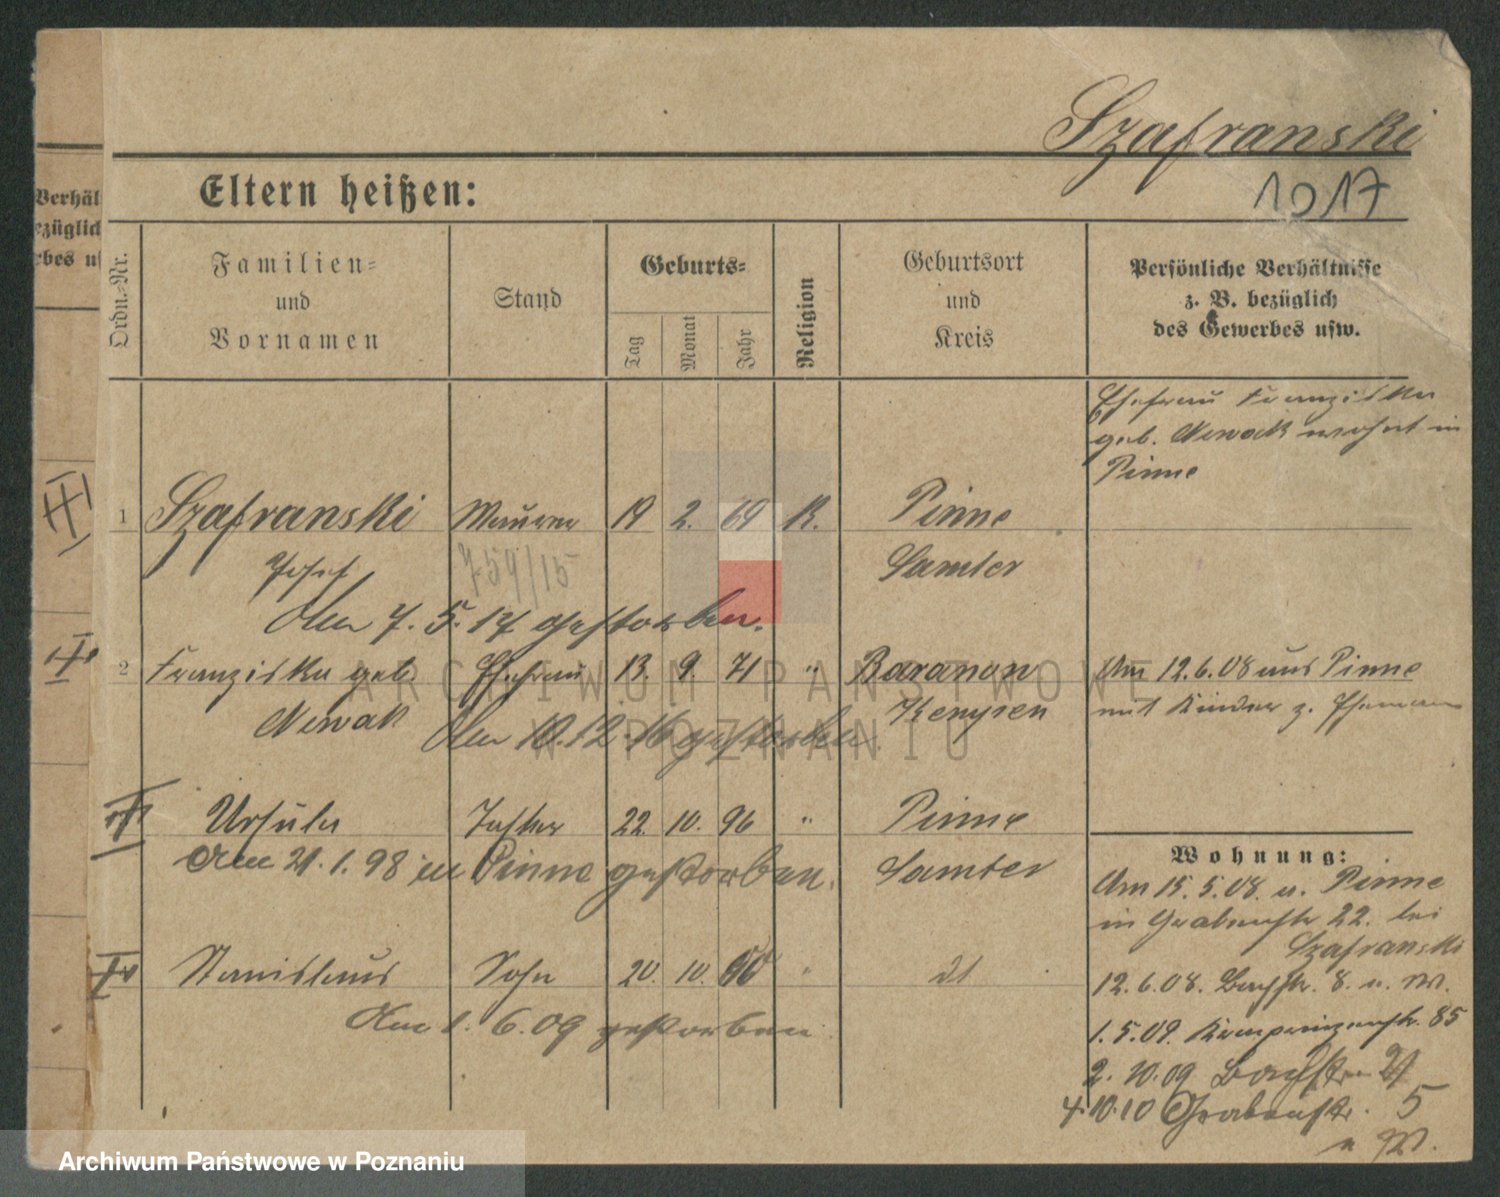 Szafranski
1017
Eltern heißen:
Verhäl
ezüglich
rbes us
Ordn.-Nr.
Familien-
und
Vornamen
Stand
Geburts-
Tag
Monat
Jahr
Religion
Geburtsort
und
Kreis
Persönliche Verhältnisse
z. B. bezüglich
des Gewerbes usw.
Ehefrau Franziska
geb. Nowak wohnt in
Pinne
1 Szafranski Maurer 19 2. 69 K. Pinne
Josef 759/15 Samter
Am 7. 5. 17 gestorben.
2 Franziska geb. Ehefrau 13. 9. 71 " Baranow Am 12.6.08 aus Pinne
Nowak Kempen mit Kinder z. Ehemann
Am 10.12.16 gestorben.
Ursula Tochter 22. 10. 96 " Pinne
Am 21.1.98 in Pinne gestorben. Samter
Wohnung:
Am 15.5.08. v. Pinne
in Grabenstr 22. bei
Szafranski
Stanislaus Sohn 20. 10. "
12.6.08. Bachstr. 8. u. W.
Am 1. 6.09 gestorben
1.5.09. Kronprinzenstr. 85
2. 10.09 Bachstr. 21
4.10.10 Grabenstr. 5
u W.
ARCHIWUM PAŃSTWOWE
W POZNANIU
Archiwum Państwowe w Poznaniu